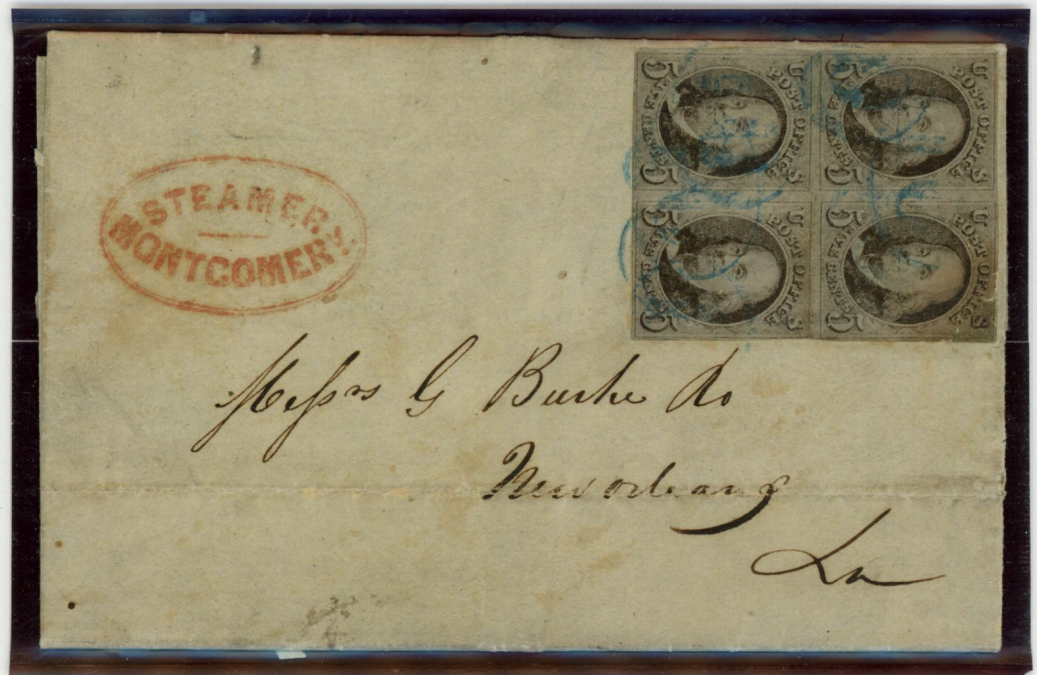 STEAMER
MONTGOMERY
U POST OFFICE S
5 FIVE CENTS 5
U POST OFFICE S
5 FIVE CENTS 5
U POST OFFICE S
5 FIVE CENTS 5
U POST OFFICE S
5 FIVE CENTS 5
Messrs G Burke &Co
New Orleans
La